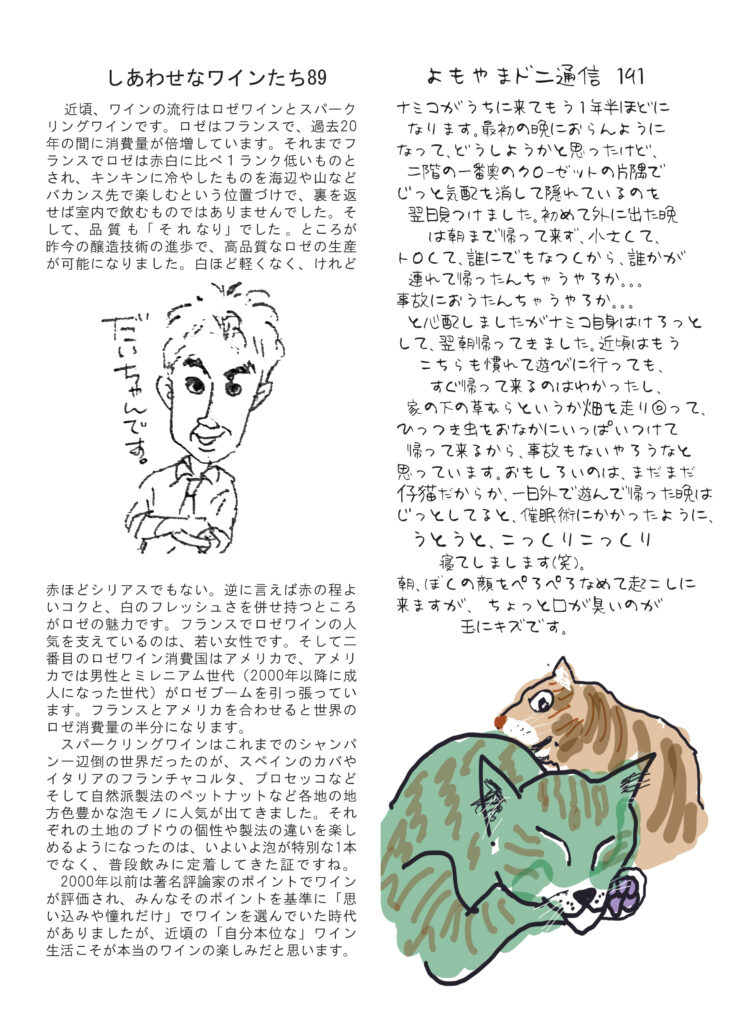 しあわせなワインたち89
近頃、ワインの流行はロゼワインとスパーク
リングワインです。ロゼはフランスで、過去20
年の間に消費量が倍増しています。それまでフ
ランスでロゼは赤白に比べ１ランク低いものと
され、キンキンに冷やしたものを海辺や山など
バカンス先で楽しむという位置づけで、裏を返
せば室内で飲むものではありませんでした。そ
して、品質も「それなり」でした。ところが
昨今の醸造技術の進歩で、高品質なロゼの生産
が可能になりました。白ほど軽くなく、けれど
だいちゃんです。
赤ほどシリアスでもない。逆に言えば赤の程よ
いコクと、白のフレッシュさを併せ持つところ
がロゼの魅力です。フランスでロゼワインの人
気を支えているのは、若い女性です。そして二
番目のロゼワイン消費国はアメリカで、アメリ
カでは男性とミレニアム世代（2000年以降に成
人になった世代）がロゼブームを引っ張ってい
ます。フランスとアメリカを合わせると世界の
ロゼ消費量の半分になります。
スパークリングワインはこれまでのシャンパ
ン一辺倒の世界だったのが、スペインのカバや
イタリアのフランチャコルタ、プロセッコなど
そして自然派製法のペットナットなど各地の地
方色豊かな泡モノに人気が出てきました。それ
ぞれの土地のブドウの個性や製法の違いを楽し
めるようになったのは、いよいよ泡が特別な1本
でなく、普段飲みに定着してきた証ですね。
2000年以前は著名評論家のポイントでワイン
が評価され、みんなそのポイントを基準に「思
い込みや憧れだけ」でワインを選んでいた時代
がありましたが、近頃の「自分本位な」ワイン
生活こそが本当のワインの楽しみだと思います。
よもやまドニ通信 191
ナミコがうちに来てもう１年半ほどに
なります。最初の晩におらんように
なって、どうしようかと思ったけど、
二階の一番奥のクローゼットの片隅で
じっと気配を消して隠れているのを
翌日見つけました。初めて外に出た晩
は朝まで帰って来ず、小さくて、
トロくて、誰にでもなつくから、誰かが
連れて帰ったんちゃうやろか。。。
事故におうたんちゃうやろか。。。
と心配しましたがナミコ自身はけろっと
して、翌朝帰ってきました。近頃はもう
こちらも慣れて遊びに行っても、
すぐ帰って来るのはわかったし、
家の下の草むらというか畑を走り回って、
ひっつき虫をおなかにいっぱいつけて
帰って来るから、事故もないやろうなと
思っています。おもしろいのは、まだまだ
仔猫だからか、一日外で遊んで帰った晩は
じっとしてると、催眠術にかかったように、
うとうと、こっくりこっくり
寝てしまします(笑)。
朝、ぼくの顔をぺろぺろなめて起こしに
来ますが、ちょっと口が臭いのが
玉にキズです。